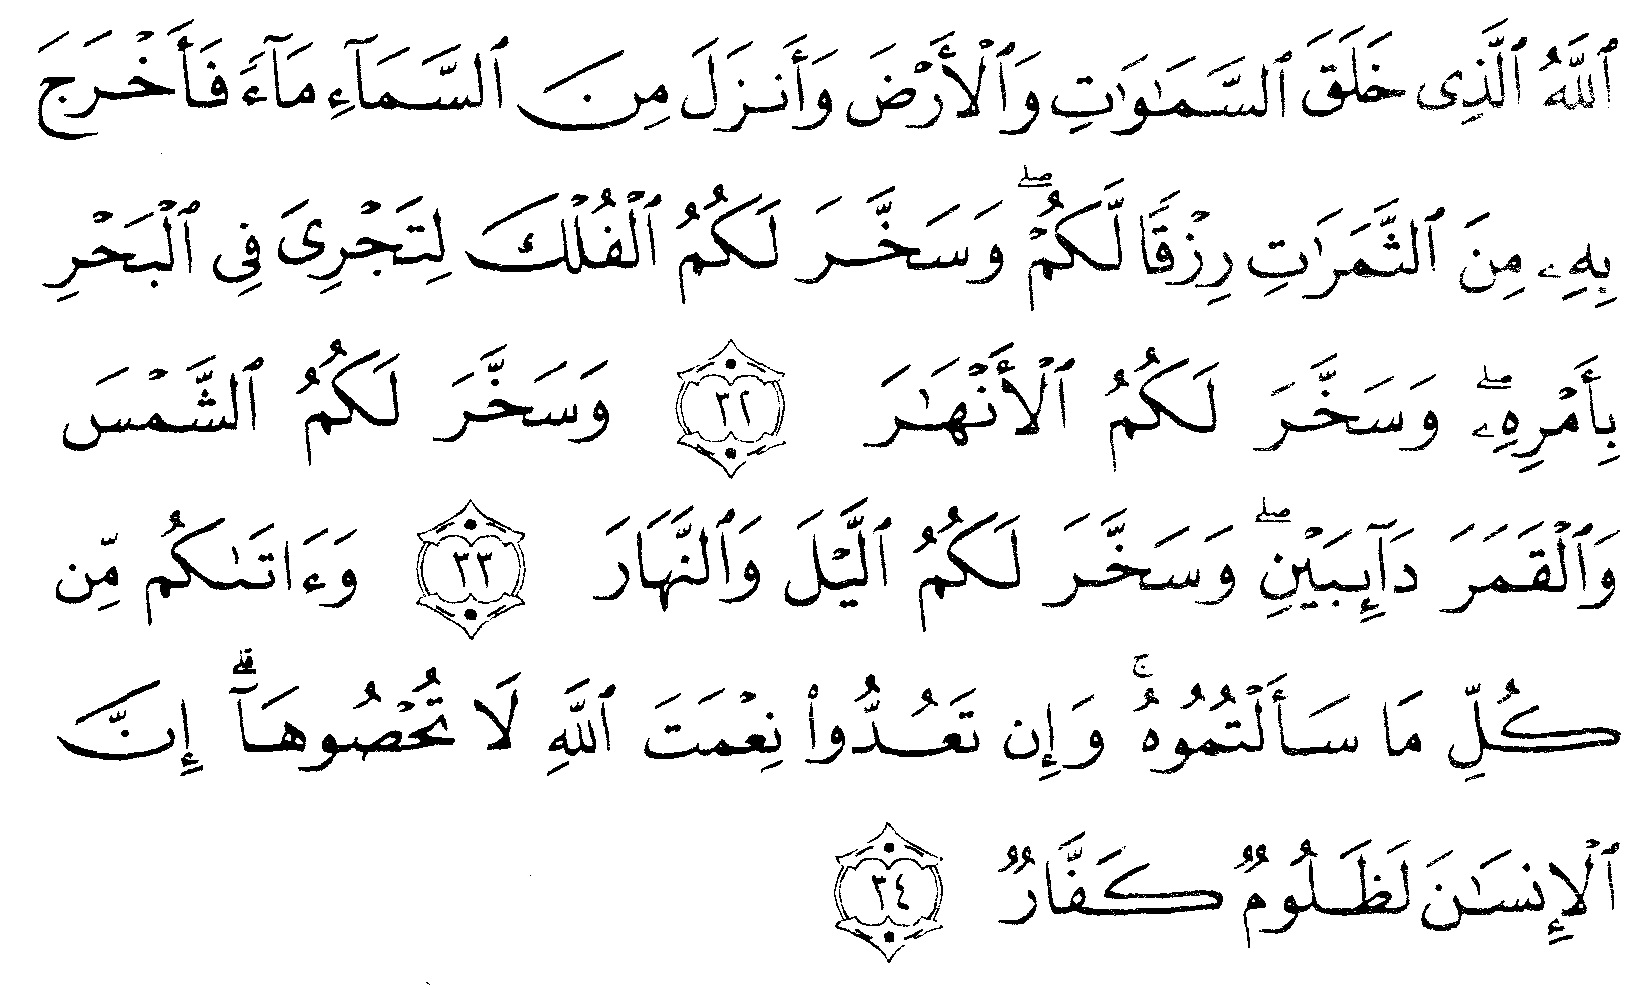 ٱللَّهُ ٱلَّذِى خَلَقَ ٱلسَّمَـٰوَٰتِ وَٱلْأَرْضَ وَأَنزَلَ مِنَ ٱلسَّمَآءِ مَآءً فَأَخْرَجَ
بِهِۦ مِنَ ٱلثَّمَرَٰتِ رِزْقًا لَّكُمْ ۖ وَسَخَّرَ لَكُمُ ٱلْفُلْكَ لِتَجْرِىَ فِى ٱلْبَحْرِ
بِأَمْرِهِۦ ۖ وَسَخَّرَ لَكُمُ ٱلْأَنْهَـٰرَ ٣٢ وَسَخَّرَ لَكُمُ ٱلشَّمْسَ
وَٱلْقَمَرَ دَآئِبَيْنِ ۖ وَسَخَّرَ لَكُمُ ٱلَّيْلَ وَٱلنَّهَارَ ٣٣ وَءَاتَىٰكُم مِّن
كُلِّ مَا سَأَلْتُمُوهُ ۚ وَإِن تَعُدُّوا۟ نِعْمَتَ ٱللَّهِ لَا تُحْصُوهَآ ۗ إِنَّ
ٱلْإِنسَـٰنَ لَظَلُومٌ كَفَّارٌ ٣٤